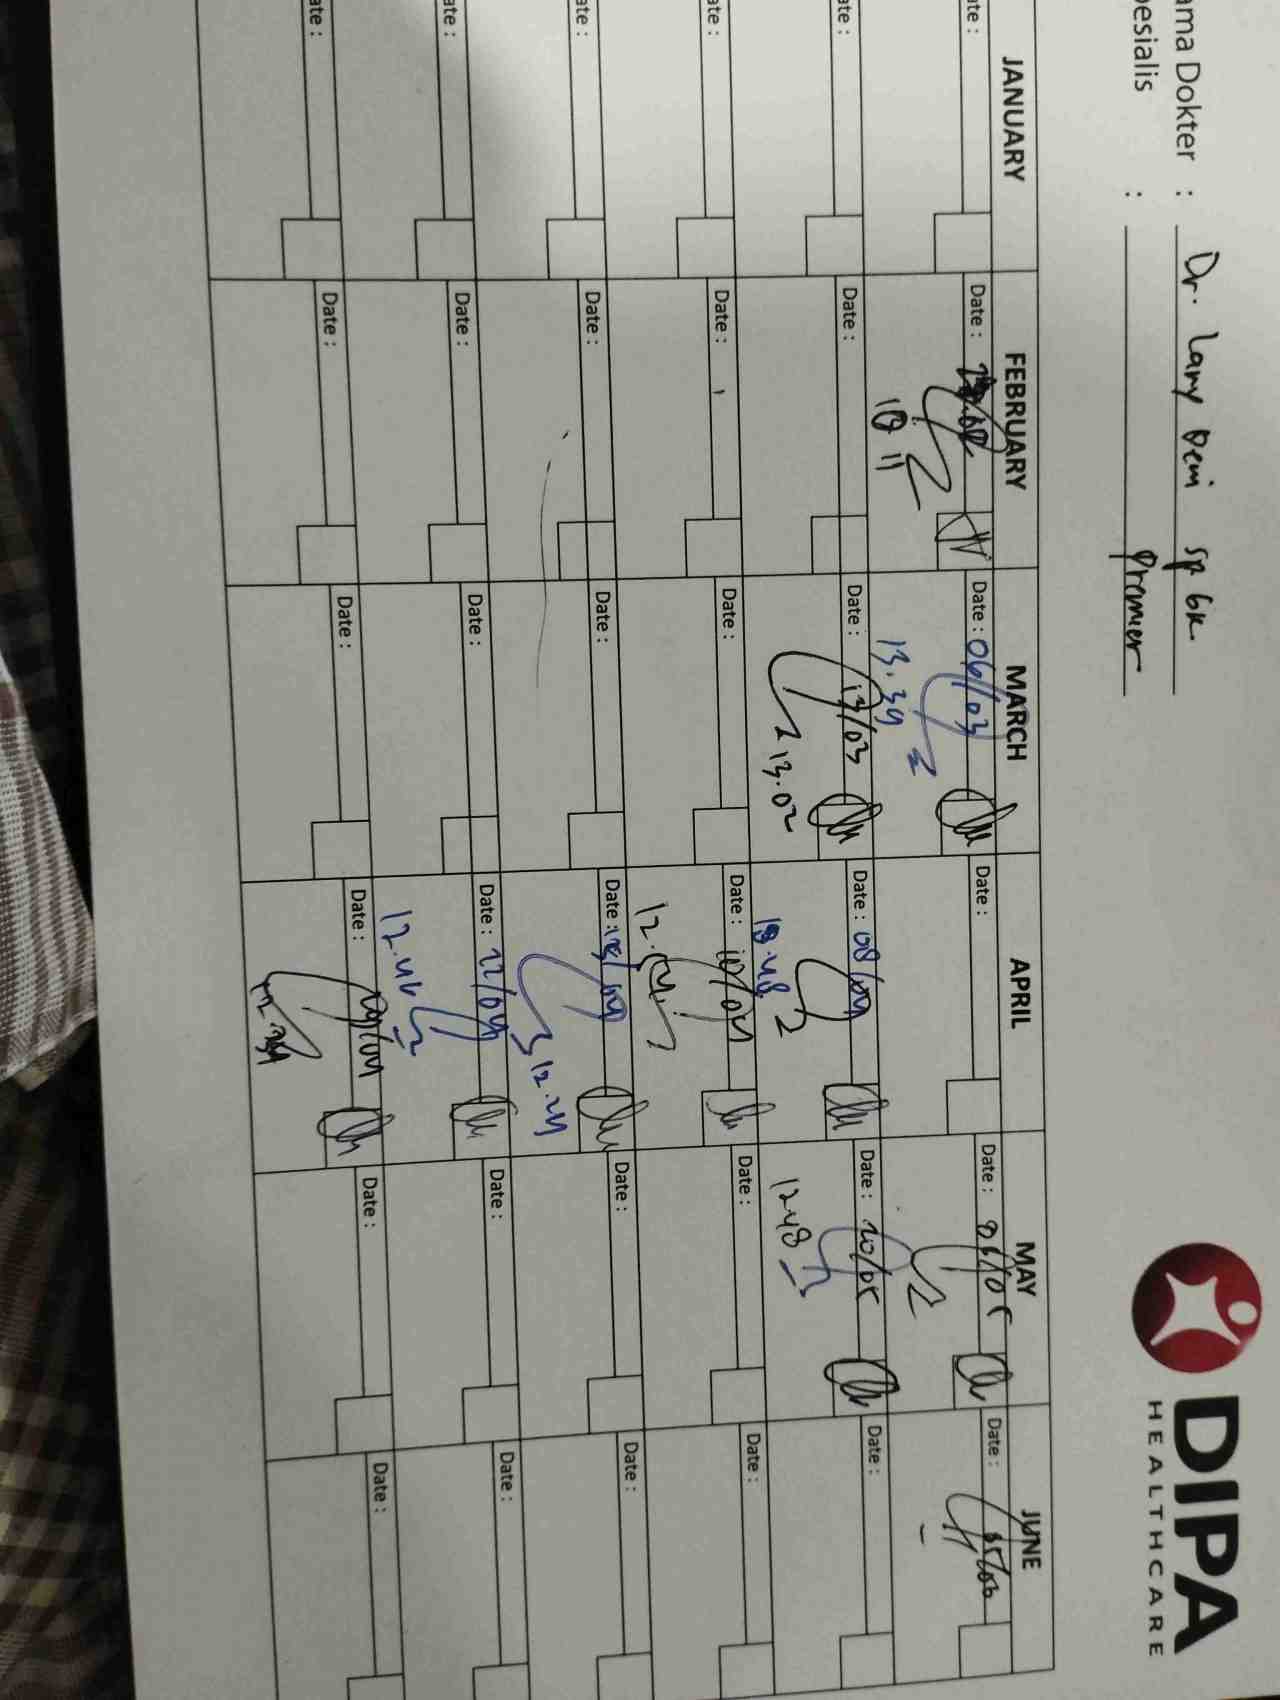 DIPA
HEALTHCARE
ama Dokter : Dr. Lany Deni sp GK
pesialis : Premier
JANUARY FEBRUARY MARCH APRIL MAY JUNE
ate : Date : Date : 06/03 Date : Date : 06/05 Date : 05/06
10 11 13.39
ate : Date : Date : 13/03 Date : 08/04 Date : 20/05 Date :
13.02 18.48 12.48
ate : Date : Date : Date : 10/04 Date : Date :
ate : Date : Date : Date : 15/04 Date : Date :
12.24
ate : Date : Date : Date : 22/04 Date : Date :
12.46
ate : Date : Date : Date : 29/04 Date : Date :